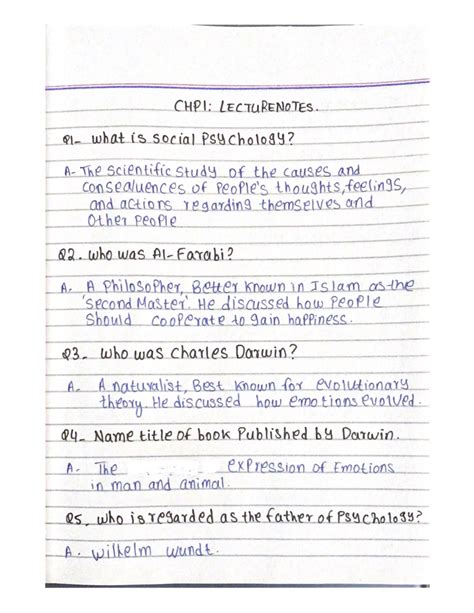 CHP1: LECTURENOTES.
Q1- what is social Psychology?
A- The scientific study of the causes and
consequences of People's thoughts, feelings,
and actions regarding themselves and
Other People
Q2. who was Al-Farabi?
A. A Philosopher, Better known in Islam as the
'second Master'. He discussed how People
Should cooperate to gain happiness.
Q3- who was Charles Darwin?
A. A naturalist, Best known for evolutionary
theory. He discussed how emotions evolved.
Q4- Name title of book Published by Darwin.
A. The expression of Emotions
in man and animal.
Q5. who is regarded as the father of Psychology?
A. wilhelm wundt.